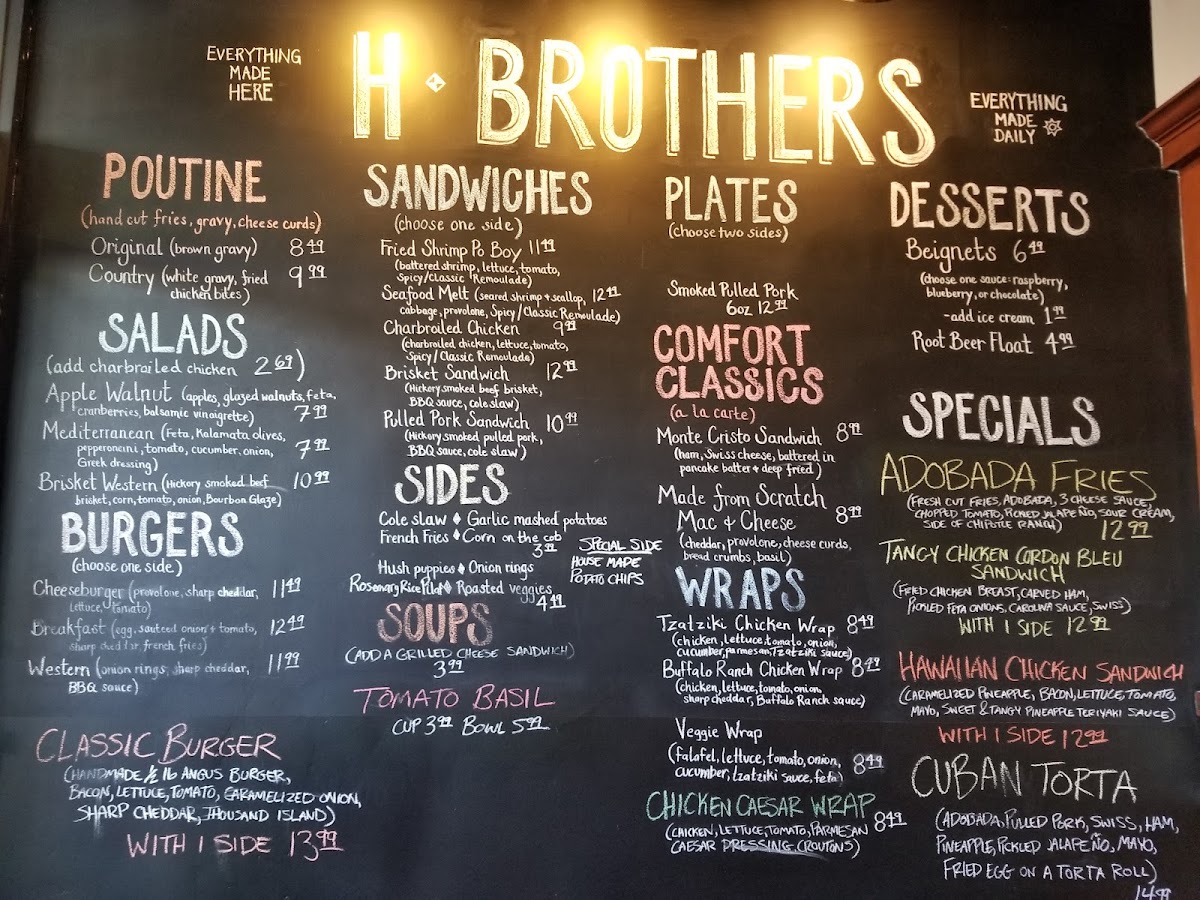 EVERYTHING
MADE
HERE
H · BROTHERS
EVERYTHING
MADE
DAILY
POUTINE
(hand cut fries, gravy, cheese curds)
Original (brown gravy) 8 49
Country (white gravy, fried 9 99
chicken bites)
SALADS
(add charbroiled chicken 2 69)
Apple Walnut (apples, glazed walnuts, feta,
cranberries, balsamic vinaigrette) 7 99
Mediterranean (Feta, Kalamata olives,
pepperoncini, tomato, cucumber, onion, 7 99
Greek dressing)
Brisket Western (Hickory smoked beef 10 99
brisket, corn, tomato, onion, Bourbon Glaze)
BURGERS
(choose one side)
Cheeseburger (provolone, sharp cheddar, 11 49
lettuce, tomato)
Breakfast (egg, sauteed onion + tomato, 12 49
sharp cheddar french fries)
Western (onion rings, sharp cheddar, 11 99
BBQ sauce)
CLASSIC BURGER
(HANDMADE 1/2 lb ANGUS BURGER,
BACON, LETTUCE, TOMATO, CARAMELIZED ONION,
SHARP CHEDDAR, THOUSAND ISLAND)
WITH 1 SIDE 13 99
SANDWICHES
(choose one side)
Fried Shrimp Po Boy 11 49
(battered shrimp, lettuce, tomato,
Spicy/Classic Remoulade)
Seafood Melt (seared shrimp + scallop, 12 49
cabbage, provolone, Spicy/Classic Remoulade)
Charbroiled Chicken 9 99
(charbroiled chicken, lettuce, tomato,
Spicy/Classic Remoulade)
Brisket Sandwich 12 99
(Hickory smoked beef brisket,
BBQ sauce, cole slaw)
Pulled Pork Sandwich 10 99
(Hickory smoked pulled pork,
BBQ sauce, cole slaw)
SIDES
Cole slaw ♦ Garlic mashed potatoes
French Fries ♦ Corn on the cob
3 99
Hush puppies ♦ Onion rings
Rosemary Rice Pilaf ♦ Roasted veggies
4 49
SPECIAL SIDE
HOUSE MADE
POTATO CHIPS
SOUPS
(ADD A GRILLED CHEESE SANDWICH)
3 99
TOMATO BASIL
CUP 3 99 BOWL 5 99
PLATES
(choose two sides)
Smoked Pulled Pork
6oz 12 99
COMFORT
CLASSICS
(a la carte)
Monte Cristo Sandwich 8 99
(ham, Swiss cheese, battered in
pancake batter + deep fried)
Made from Scratch
Mac & Cheese 8 99
(cheddar, provolone, cheese curds,
bread crumbs, basil)
WRAPS
Tzatziki Chicken Wrap 8 49
(chicken, lettuce, tomato, onion,
cucumber, parmesan, Tzatziki sauce)
Buffalo Ranch Chicken Wrap 8 49
(chicken, lettuce, tomato, onion,
sharp cheddar, Buffalo Ranch sauce)
Veggie Wrap
(falafel, lettuce, tomato, onion, 8 49
cucumber, tzatziki sauce, feta)
CHICKEN CAESAR WRAP
(CHICKEN, LETTUCE, TOMATO, PARMESAN 8 49
CAESAR DRESSING, CROUTONS)
DESSERTS
Beignets 6 49
(choose one sauce: raspberry,
blueberry, or chocolate)
-add ice cream 1 99
Root Beer Float 4 99
SPECIALS
ADOBADA FRIES
(FRESH CUT FRIES, ADOBADA, 3 CHEESE SAUCE,
CHOPPED TOMATO, PICKED JALAPEÑO, SOUR CREAM,
SIDE OF CHIPOTLE RANCH) 12 99
TANGY CHICKEN CORDON BLEU
SANDWICH
(FRIED CHICKEN BREAST, CARVED HAM,
PICKLED FETA ONIONS, CAROLINA SAUCE, SWISS)
WITH 1 SIDE 12 99
HAWAIIAN CHICKEN SANDWICH
(CARAMELIZED PINEAPPLE, BACON, LETTUCE, TOMATO,
MAYO, SWEET & TANGY PINEAPPLE TERIYAKI SAUCE)
WITH 1 SIDE 12 99
CUBAN TORTA
(ADOBADA, PULLED PORK, SWISS, HAM,
PINEAPPLE, PICKLED JALAPEÑO, MAYO,
FRIED EGG ON A TORTA ROLL)
14 99